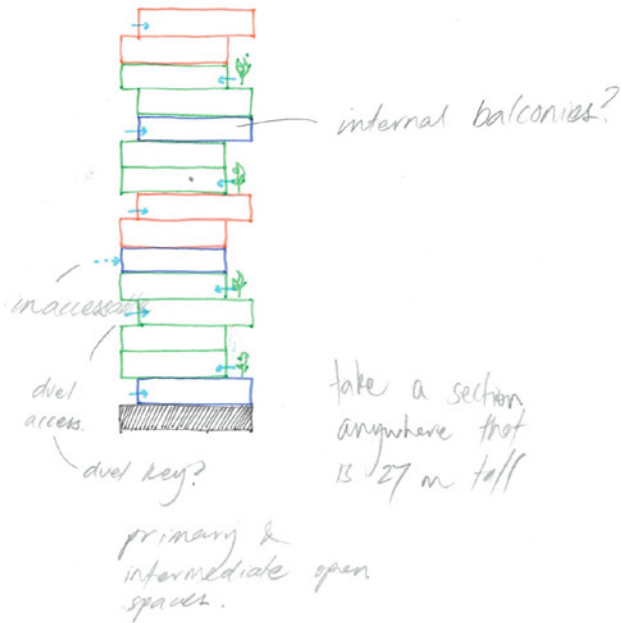 internal balconies?
inaccessable
duel
access.
duel key?
take a section
anywhere that
is 27 m tall
primary &
intermediate open
spaces.